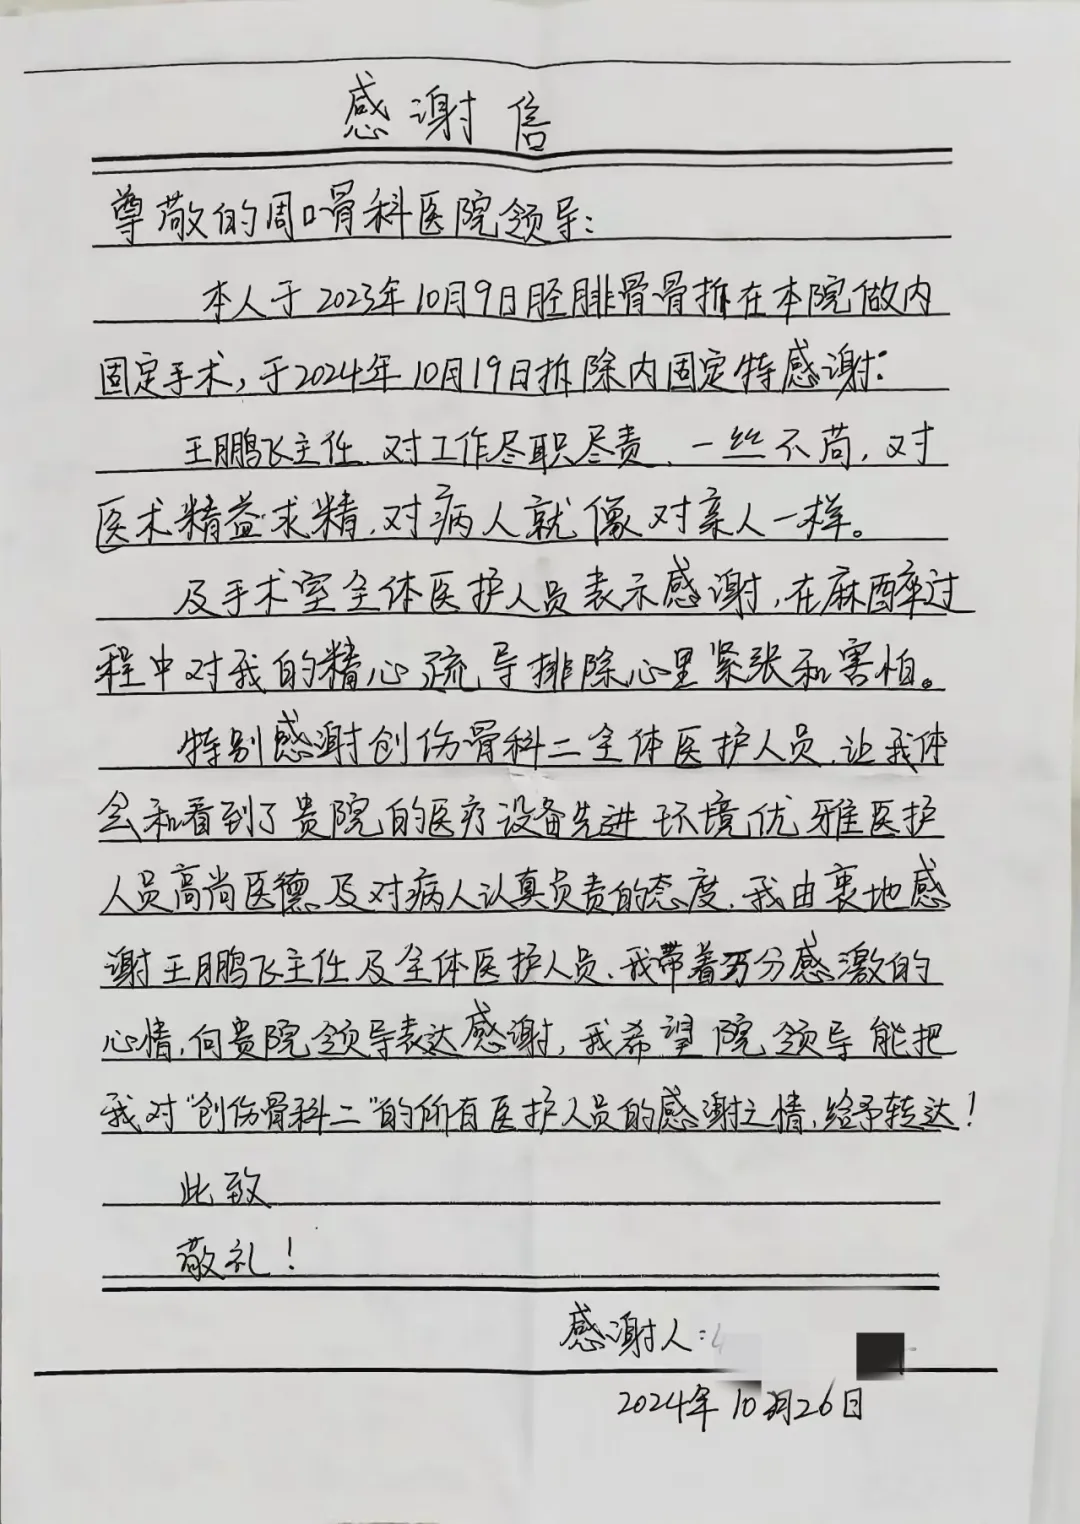 感谢信
尊敬的周口骨科医院领导：
本人于2023年10月9日胫腓骨骨折在本院做内
固定手术，于2024年10月19日拆除内固定特感谢：
王鹏飞主任，对工作尽职尽责，一丝不苟，对
医术精益求精，对病人就像对亲人一样。
及手术室全体医护人员表示感谢，在麻醉过
程中对我的精心疏导排除心里紧张和害怕。
特别感谢创伤骨科二全体医护人员，让我体
会和看到了贵院的医疗设备先进环境优雅医护
人员高尚医德及对病人认真负责的态度，我由衷地感
谢王鹏飞主任及全体医护人员，我带着万分感激的
心情，向贵院领导表达感谢，我希望院领导能把
我对“创伤骨科二”的所有医护人员的感谢之情，给予转达！
此致
敬礼！
感谢人：
2024年10月26日